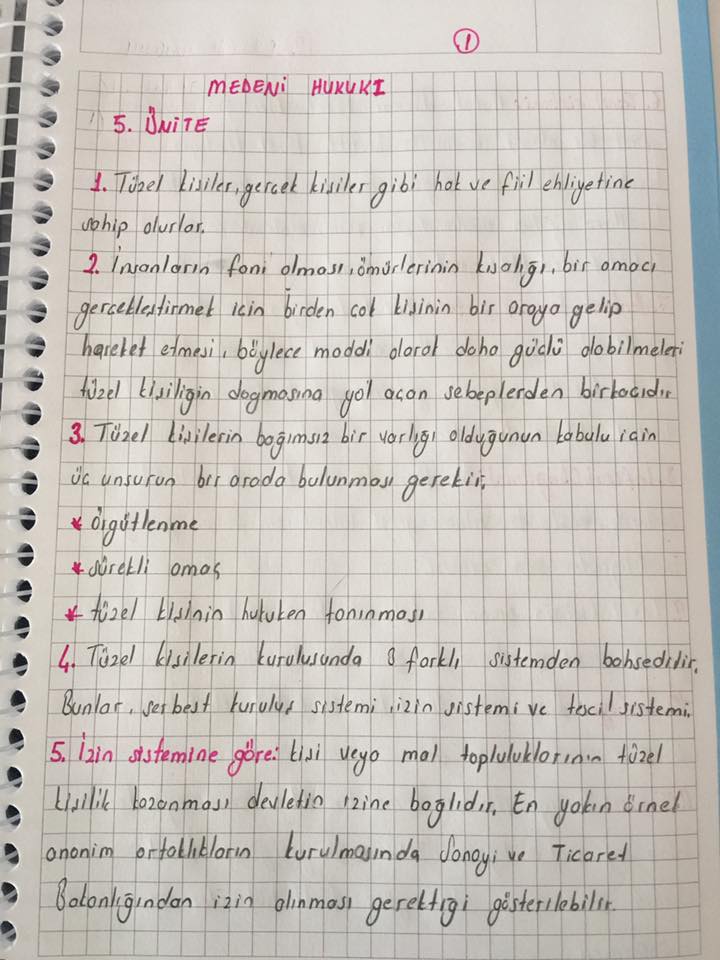 1
MEDENİ HUKUKI
5. ÜNİTE
1. Tüzel kisiler, gercek kisiler gibi hak ve fiil ehliyetine
sahip olurlar.
2. İnsanların fani olması, ömürlerinin kısalığı, bir amacı
gerceklestirmek icin birden cok kisinin bir araya gelip
hareket etmesi, böylece maddi olarak daha güclü olabilmeleri
tüzel kisiligin dogmasına yol acan sebeplerden birkacıdır
3. Tüzel kisilerin bağımsız bir varlığı olduğunun kabulu icin
üc unsurun bir arada bulunması gerekir.
* örgütlenme
* sürekli amaç
* tüzel kisinin hukuken tanınması
4. Tüzel kisilerin kurulusunda 3 farklı sistemden bahsedilir.
Bunlar, serbest kurulus sistemi, izin sistemi ve tescil sistemi.
5. İzin sistemine göre: kisi veya mal topluluklarının tüzel
kisilik kazanması devletin izine bağlıdır. En yakın örnek
anonim ortaklıkların kurulmasında Sanayi ve Ticaret
Bakanlığından izin alınması gerektigi gösterilebilir.